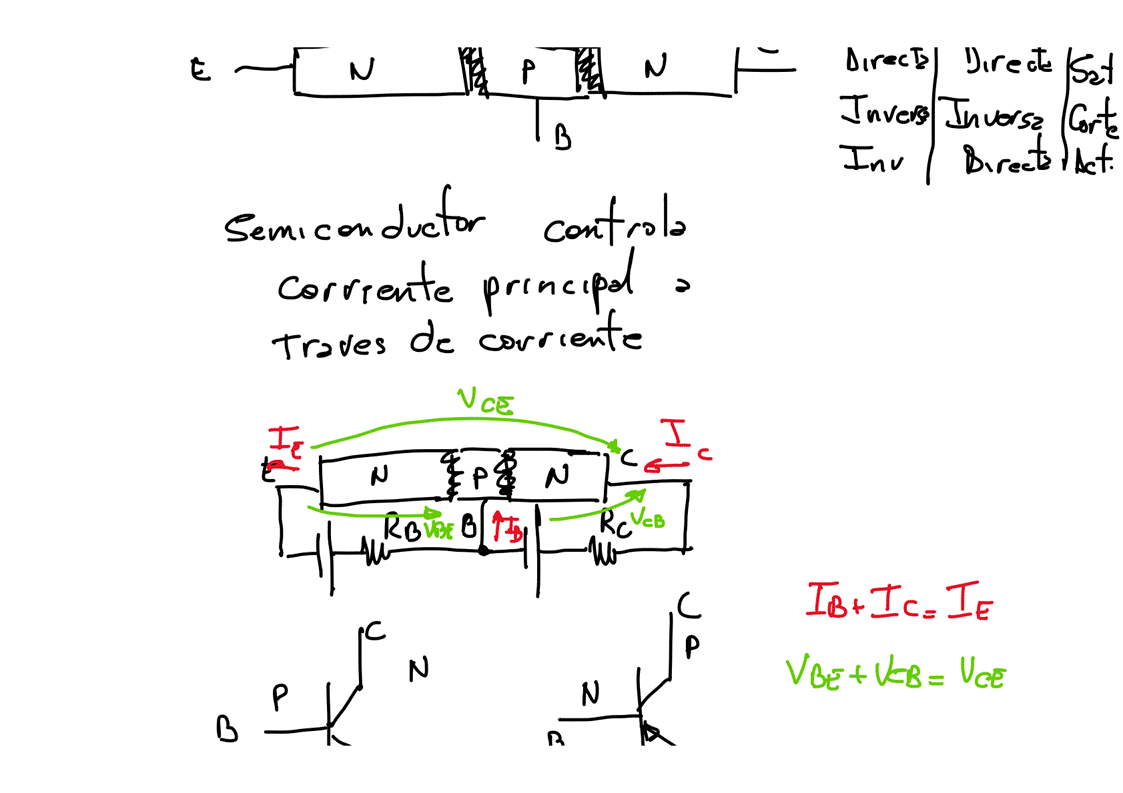 E N P N C
B
Directa Directa Sat
Inversa Inversa Corte
Inv Directa Act.
Semiconductor controla
corriente principal a
traves de corriente
VCE
IE IC
E N P N C
RB VBE B IB RC VCB
IB + IC = IE
VBE + VCB = VCE
C
N
P
B
C
P
N
B